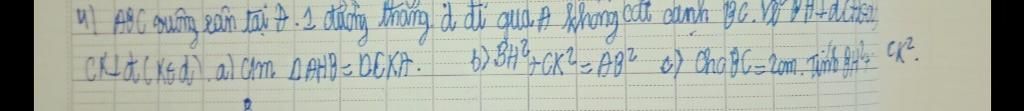 4) ABC vuông cân tại A. 1 đường thẳng d đi qua A không cắt cạnh BC. Vẽ BH⊥d(H∈d)
CK⊥d(K∈d). a) Cm ΔAHB=ΔCKA. b) BH²+CK²=AB² c) Cho BC=2cm. Tính BH²+ CK².